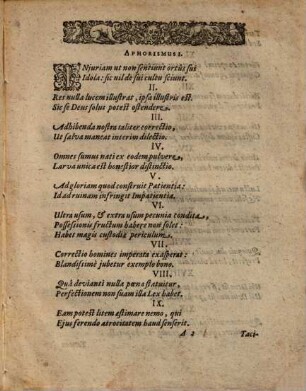 APHORISMUS I.
INjuriam ut non sentiunt ortûs sui
Idola: sic nil de sui cultu sciunt.
II.
Res nulla lucem illustrat, ipsa illustris est.
Sic se Deus solus potest ostendere.
III.
Adhibenda nostra taliter correctio,
Ut salva maneat interim dilectio.
IV.
Omnes sumus nati ex eodem pulvere,
Larva unica est honestior distinctio.
V.
Ad gloriam quod construit Patientia:
Id ad ruinam infringit Impatientia.
VI.
Ultra usum, & extra usum pecunia condita,
Possessionis fructum habere non solet:
Habet magis custodiæ periculum.
VII.
Correctio homines imperata exasperat:
Blandissimè jubetur exemplo bono.
VIII.
Quâ devianti nulla pœna statuitur,
Perfectionem non suam illa Lex habet.
IX.
Eam potest litem æstimare nemo, qui
Ejus ferendo atrocitatem haud senserit.
A 2
Taci-